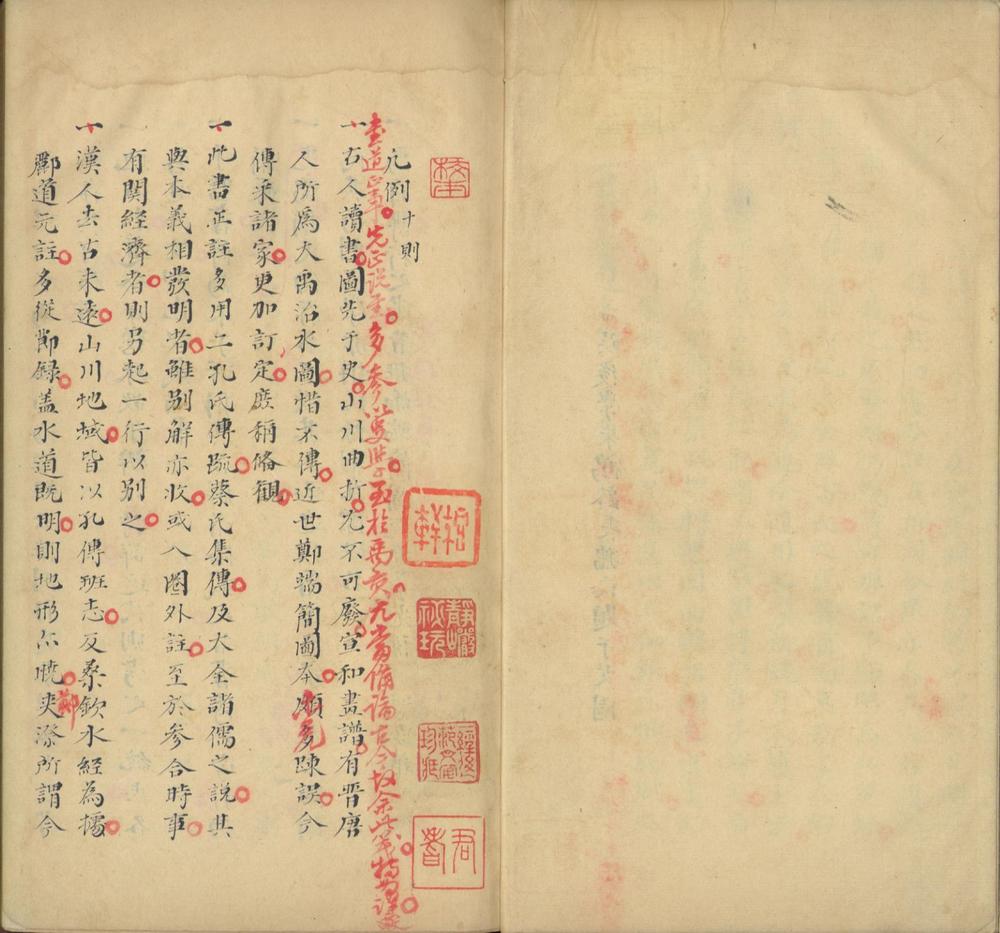 凡例十則
多參
至於禹貢尤當備論古今故余此箋特為詳
一古人讀書圖先于史山川曲折尤不可廢宣和畫譜有晉唐
人所為大禹治水圖惜不傳近世鄭端簡圖本頗多踈誤今
不免
傳采諸家更加訂定庶稱俻觀
一此書正註多用二孔氏傳疏蔡氏集傳及大全諸儒之説其
與本義相發明者雖别解亦收或入圈外註至於參合時事
有関經濟者則另起一行以别之
一漢人去古未遠山川地域皆以孔傳班志及桑欽水經為據
酈道元註多從節録盖水道既明則地形亦曉夾漈所謂今
鄭